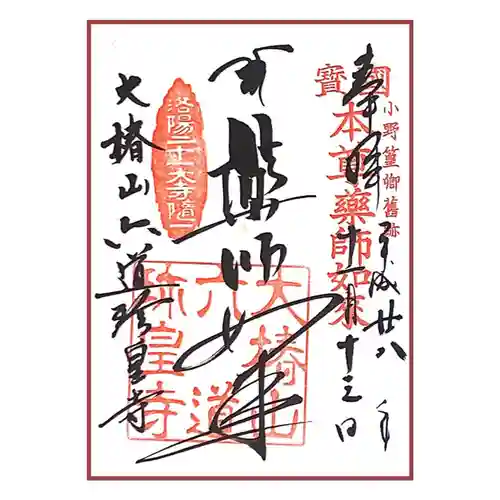 奉拝
平成廿八年
十一月十三日
國寶
本尊薬師如来
小野篁卿舊跡
薬師如来
洛陽
大椿山
六道
珍皇寺
大椿山六道珍皇寺